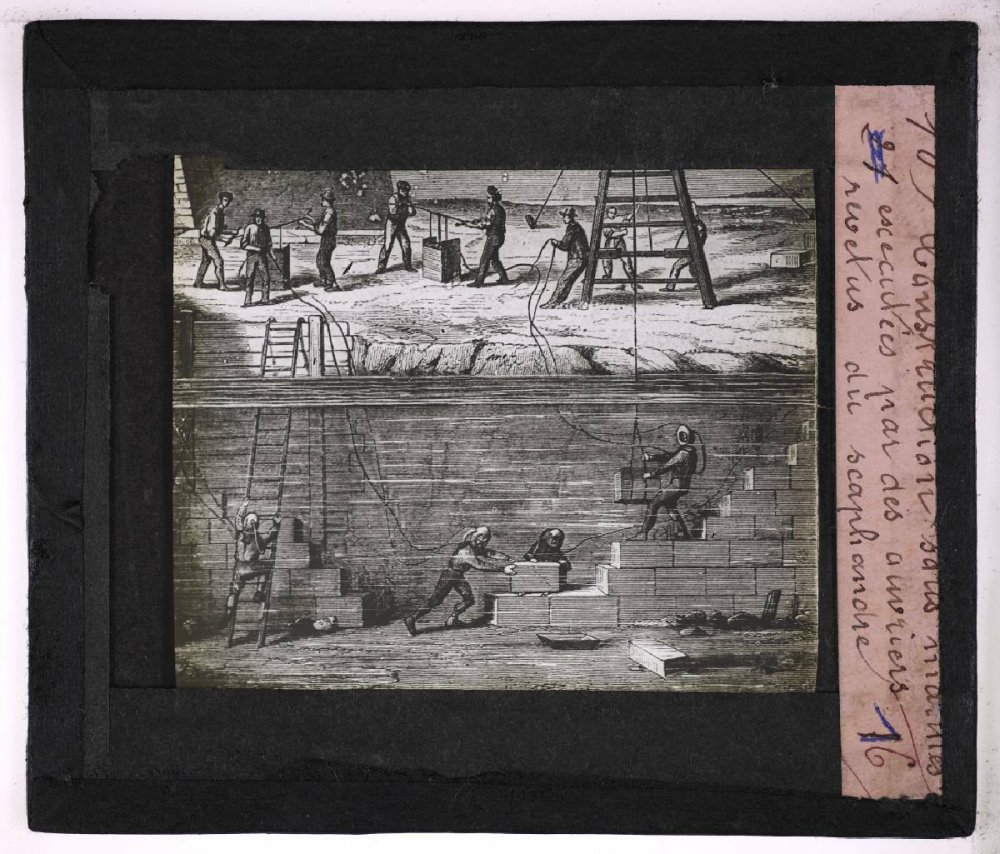 10) Constructions sous marines
exécutées par des ouvriers
revetus du scaphandre
16